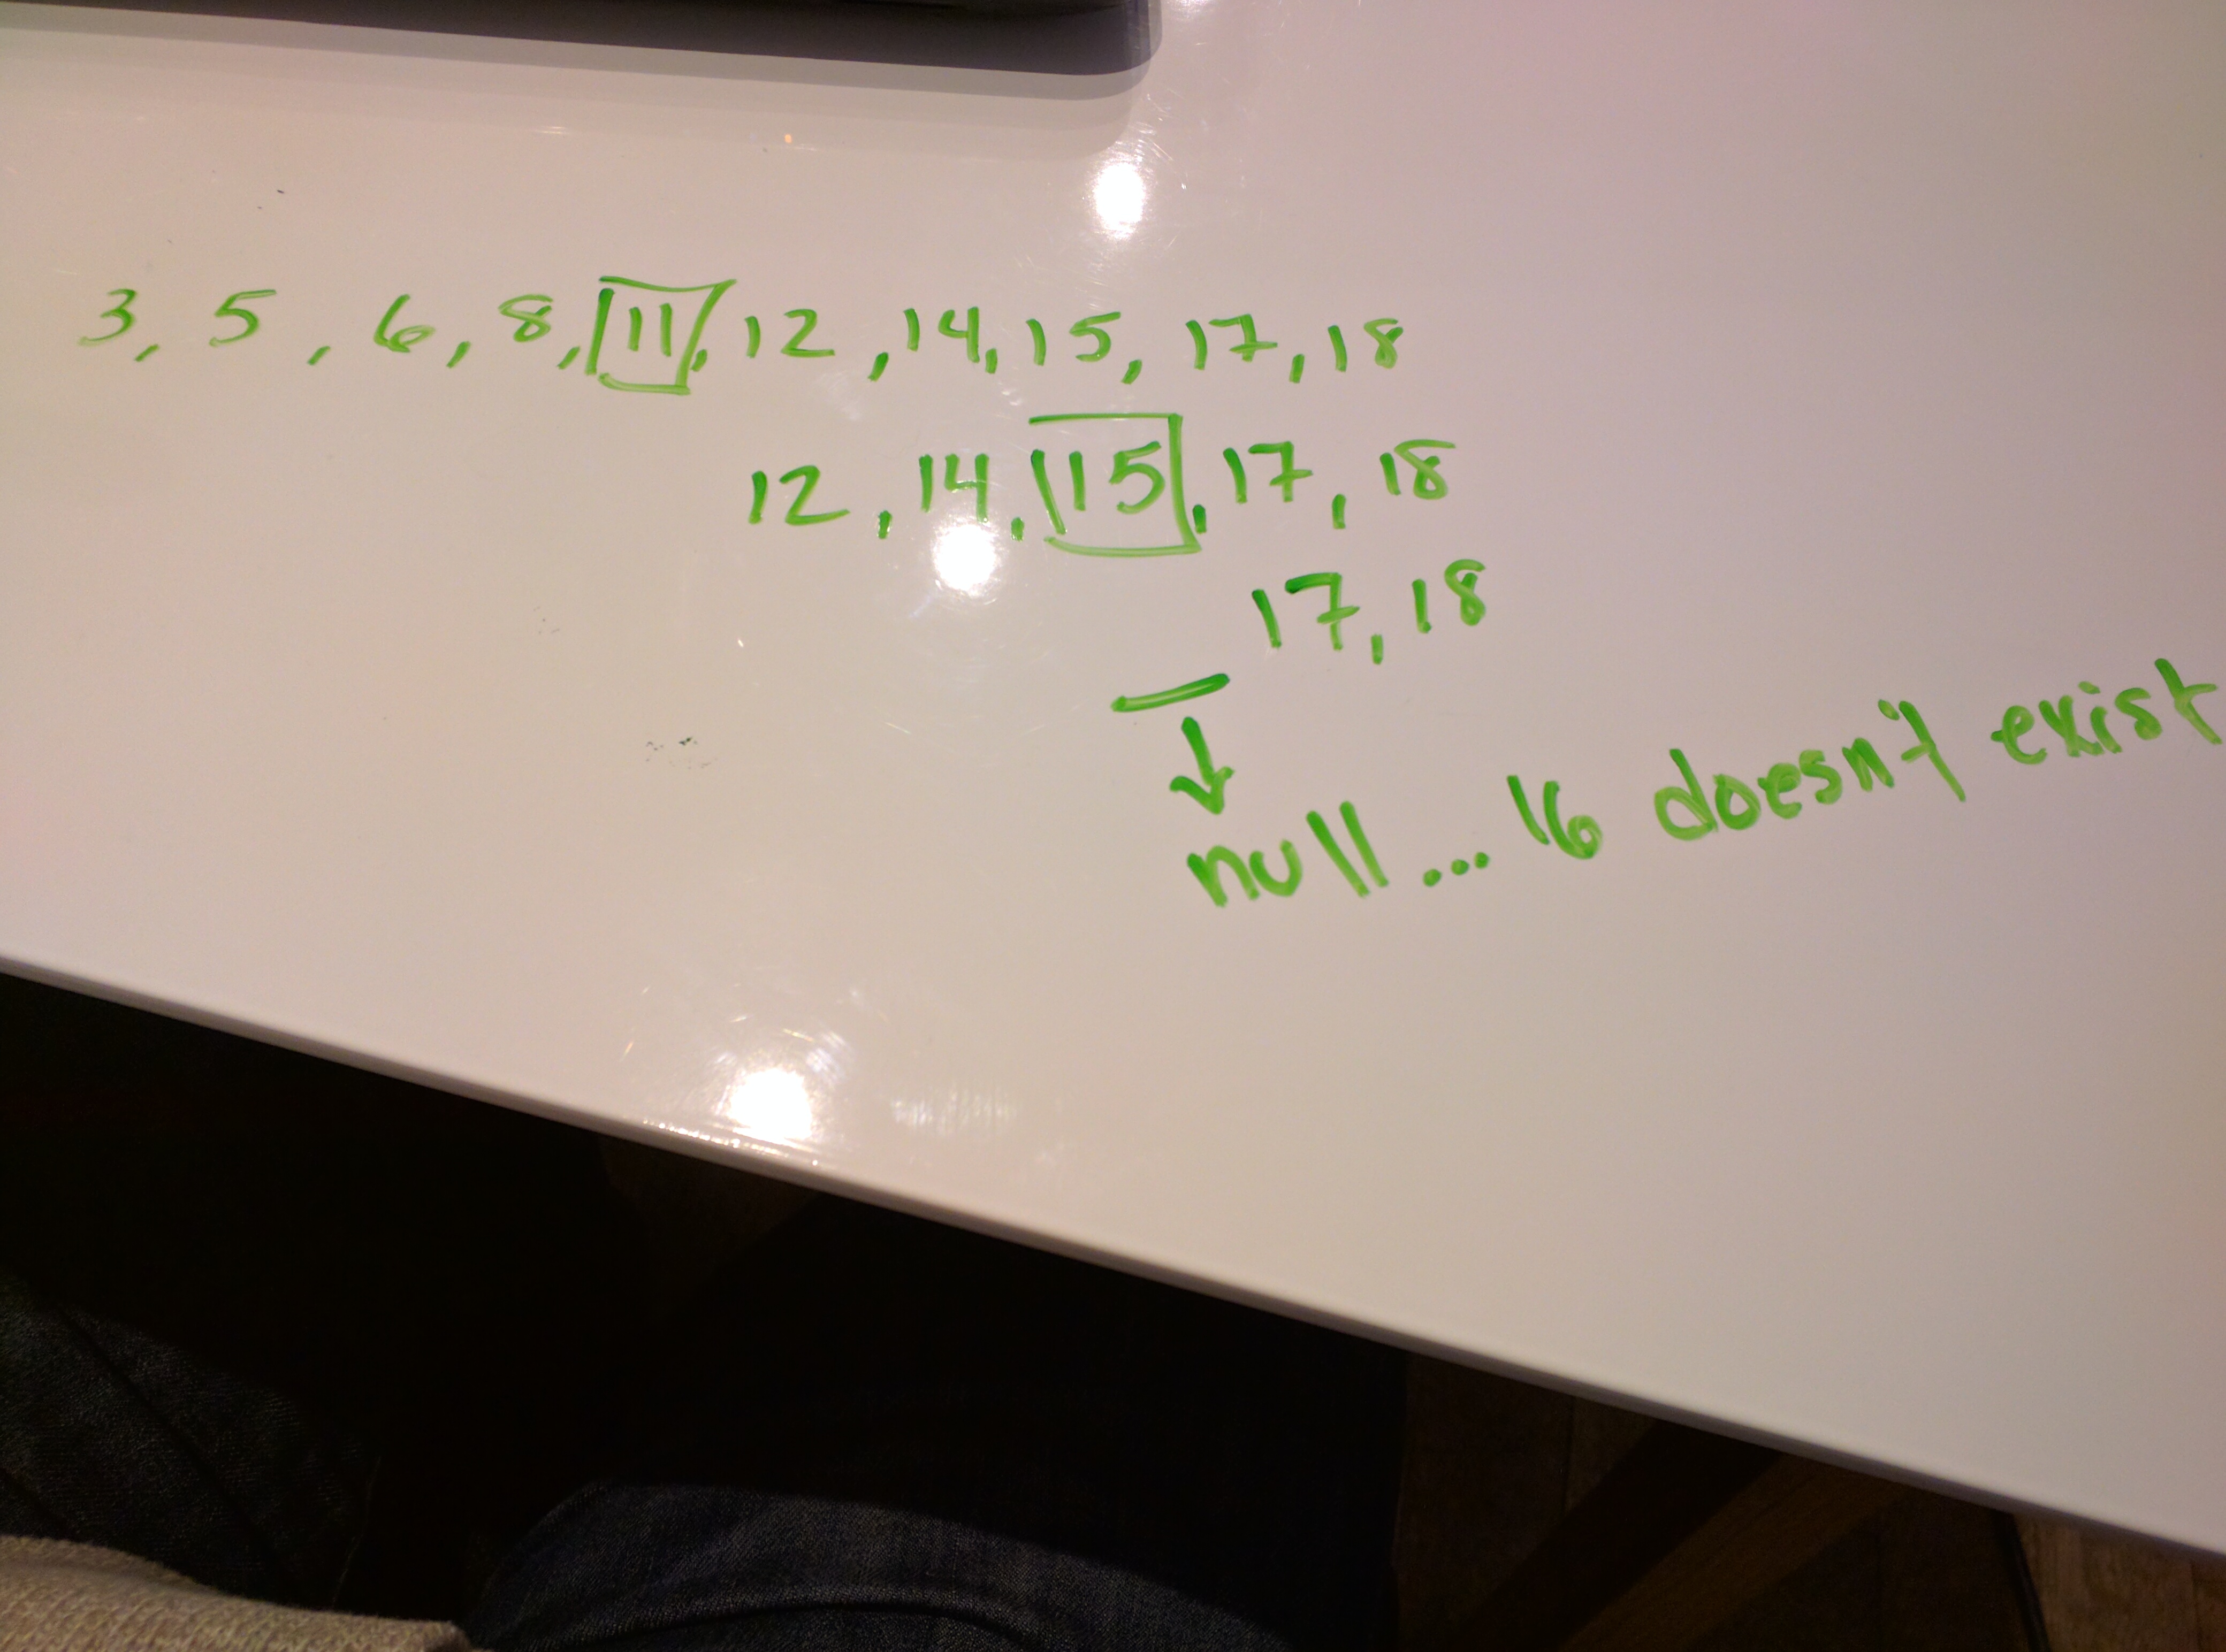 3, 5, 6, 8, 11, 12, 14, 15, 17, 18
12, 14, 15, 17, 18
17, 18
null... 16 doesn't exist